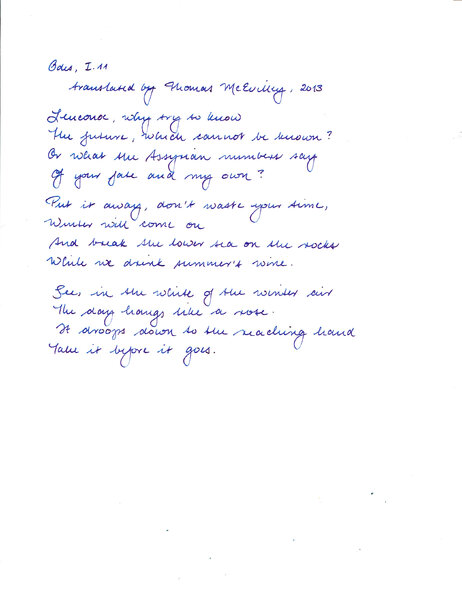 Odes, I.11
translated by Thomas McEvilley, 2013
Leuconoe, why try to know
The future, which cannot be known?
Or what the Assyrian numbers say
Of your fate and my own?
Put it away, don't waste your time,
Winter will come on
And break the lower sea on the rocks
While we drink summer's wine.
See, in the white of the winter air
The day hangs like a rose.
It droops down to the reaching hand
Take it before it goes.